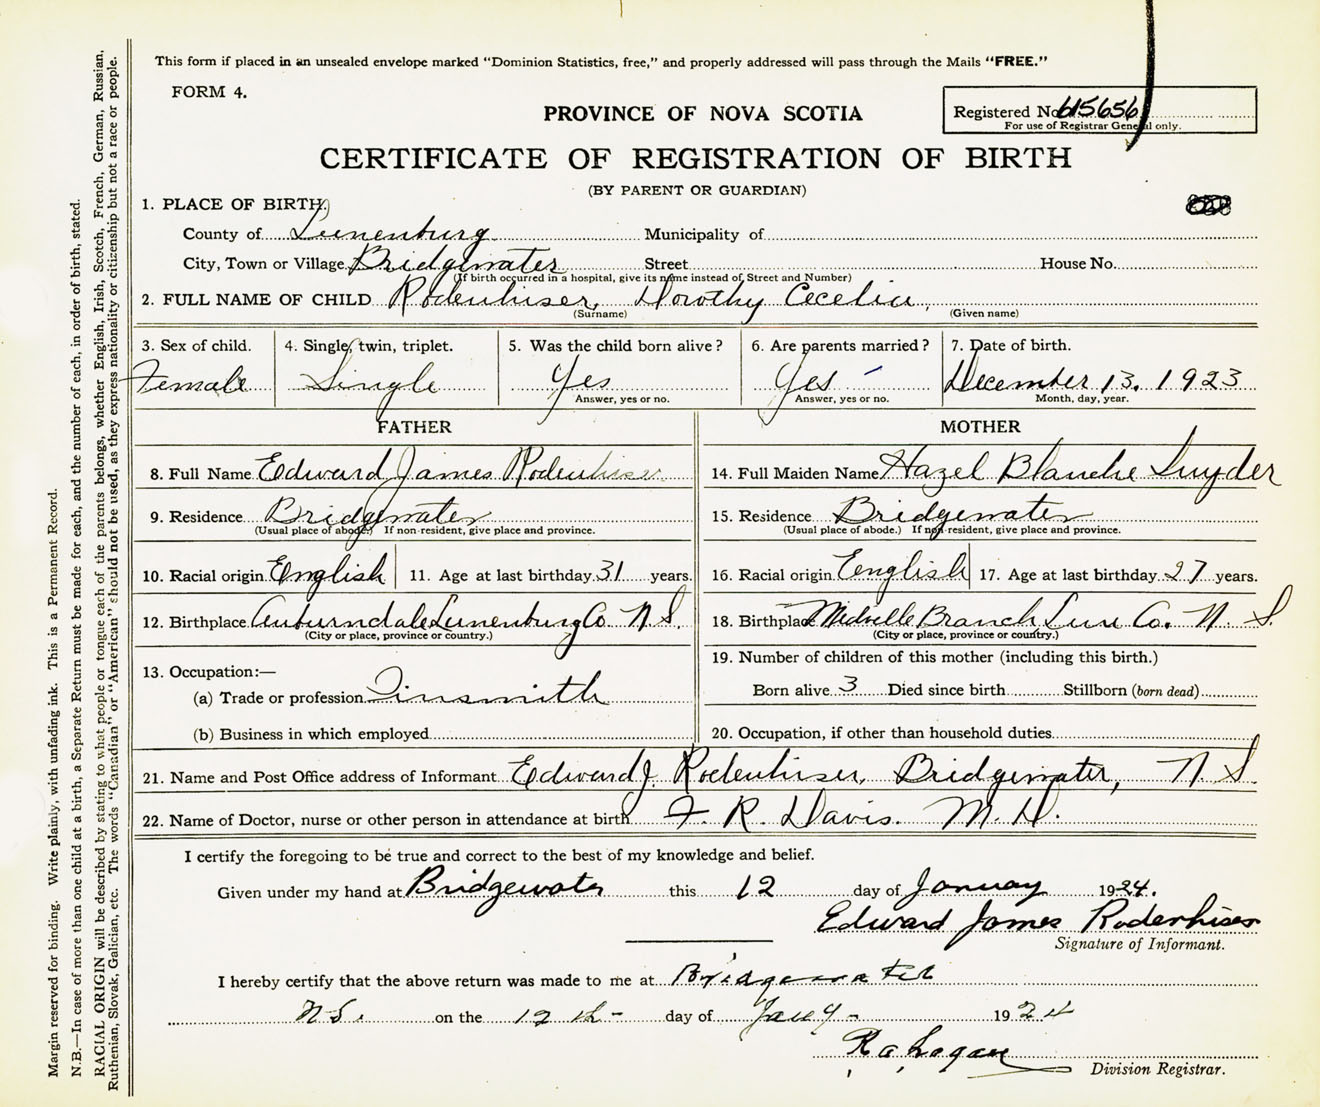 This form if placed in an unsealed envelope marked "Dominion Statistics, free," and properly addressed will pass through the Mails "FREE."
FORM 4.
PROVINCE OF NOVA SCOTIA
Registered No. 615656
For use of Registrar General only.
CERTIFICATE OF REGISTRATION OF BIRTH
(BY PARENT OR GUARDIAN)
1. PLACE OF BIRTH:
County of Lunenburg Municipality of
City, Town or Village Bridgewater Street House No.
(If birth occurred in a hospital, give its name instead of Street and Number)
2. FULL NAME OF CHILD Rodenhiser, Dorothy Cecelia,
(Surname) (Given name)
3. Sex of child. 4. Single, twin, triplet. 5. Was the child born alive? 6. Are parents married? 7. Date of birth.
Female Single Yes Yes December 13, 1923
Answer, yes or no. Answer, yes or no. Month, day, year.
FATHER MOTHER
8. Full Name Edward James Rodenhiser 14. Full Maiden Name Hazel Blanche Snyder
9. Residence Bridgewater 15. Residence Bridgewater
(Usual place of abode.) If non-resident, give place and province. (Usual place of abode.) If non-resident, give place and province.
10. Racial origin English 11. Age at last birthday 31 years. 16. Racial origin English 17. Age at last birthday 27 years.
12. Birthplace Auburndale Lunenburg Co. N.S. 18. Birthplace Midville Branch Lun Co. N.S.
(City or place, province or country.) (City or place, province or country.)
13. Occupation:— 19. Number of children of this mother (including this birth.)
(a) Trade or profession Tinsmith Born alive 3 Died since birth Stillborn (born dead)
(b) Business in which employed 20. Occupation, if other than household duties
21. Name and Post Office address of Informant Edward J. Rodenhiser, Bridgewater, N.S.
22. Name of Doctor, nurse or other person in attendance at birth F. R. Davis. M.D.
I certify the foregoing to be true and correct to the best of my knowledge and belief.
Given under my hand at Bridgewater this 12 day of January 1924.
Edward James Rodenhiser
Signature of Informant.
I hereby certify that the above return was made to me at Bridgewater
N.S. on the 12th day of Jany 1924
Division Registrar.
Margin reserved for binding. Write plainly, with unfading ink. This is a Permanent Record.
N.B.—In case of more than one child at a birth, a Separate Return must be made for each, and the number of each, in order of birth, stated.
RACIAL ORIGIN will be described by stating to what people or tongue each of the parents belongs, whether English, Irish, Scotch, French, German, Russian,
Ruthenian, Slovak, Galician, etc. The words "Canadian" or "American" should not be used, as they express nationality or citizenship but not a race or people.